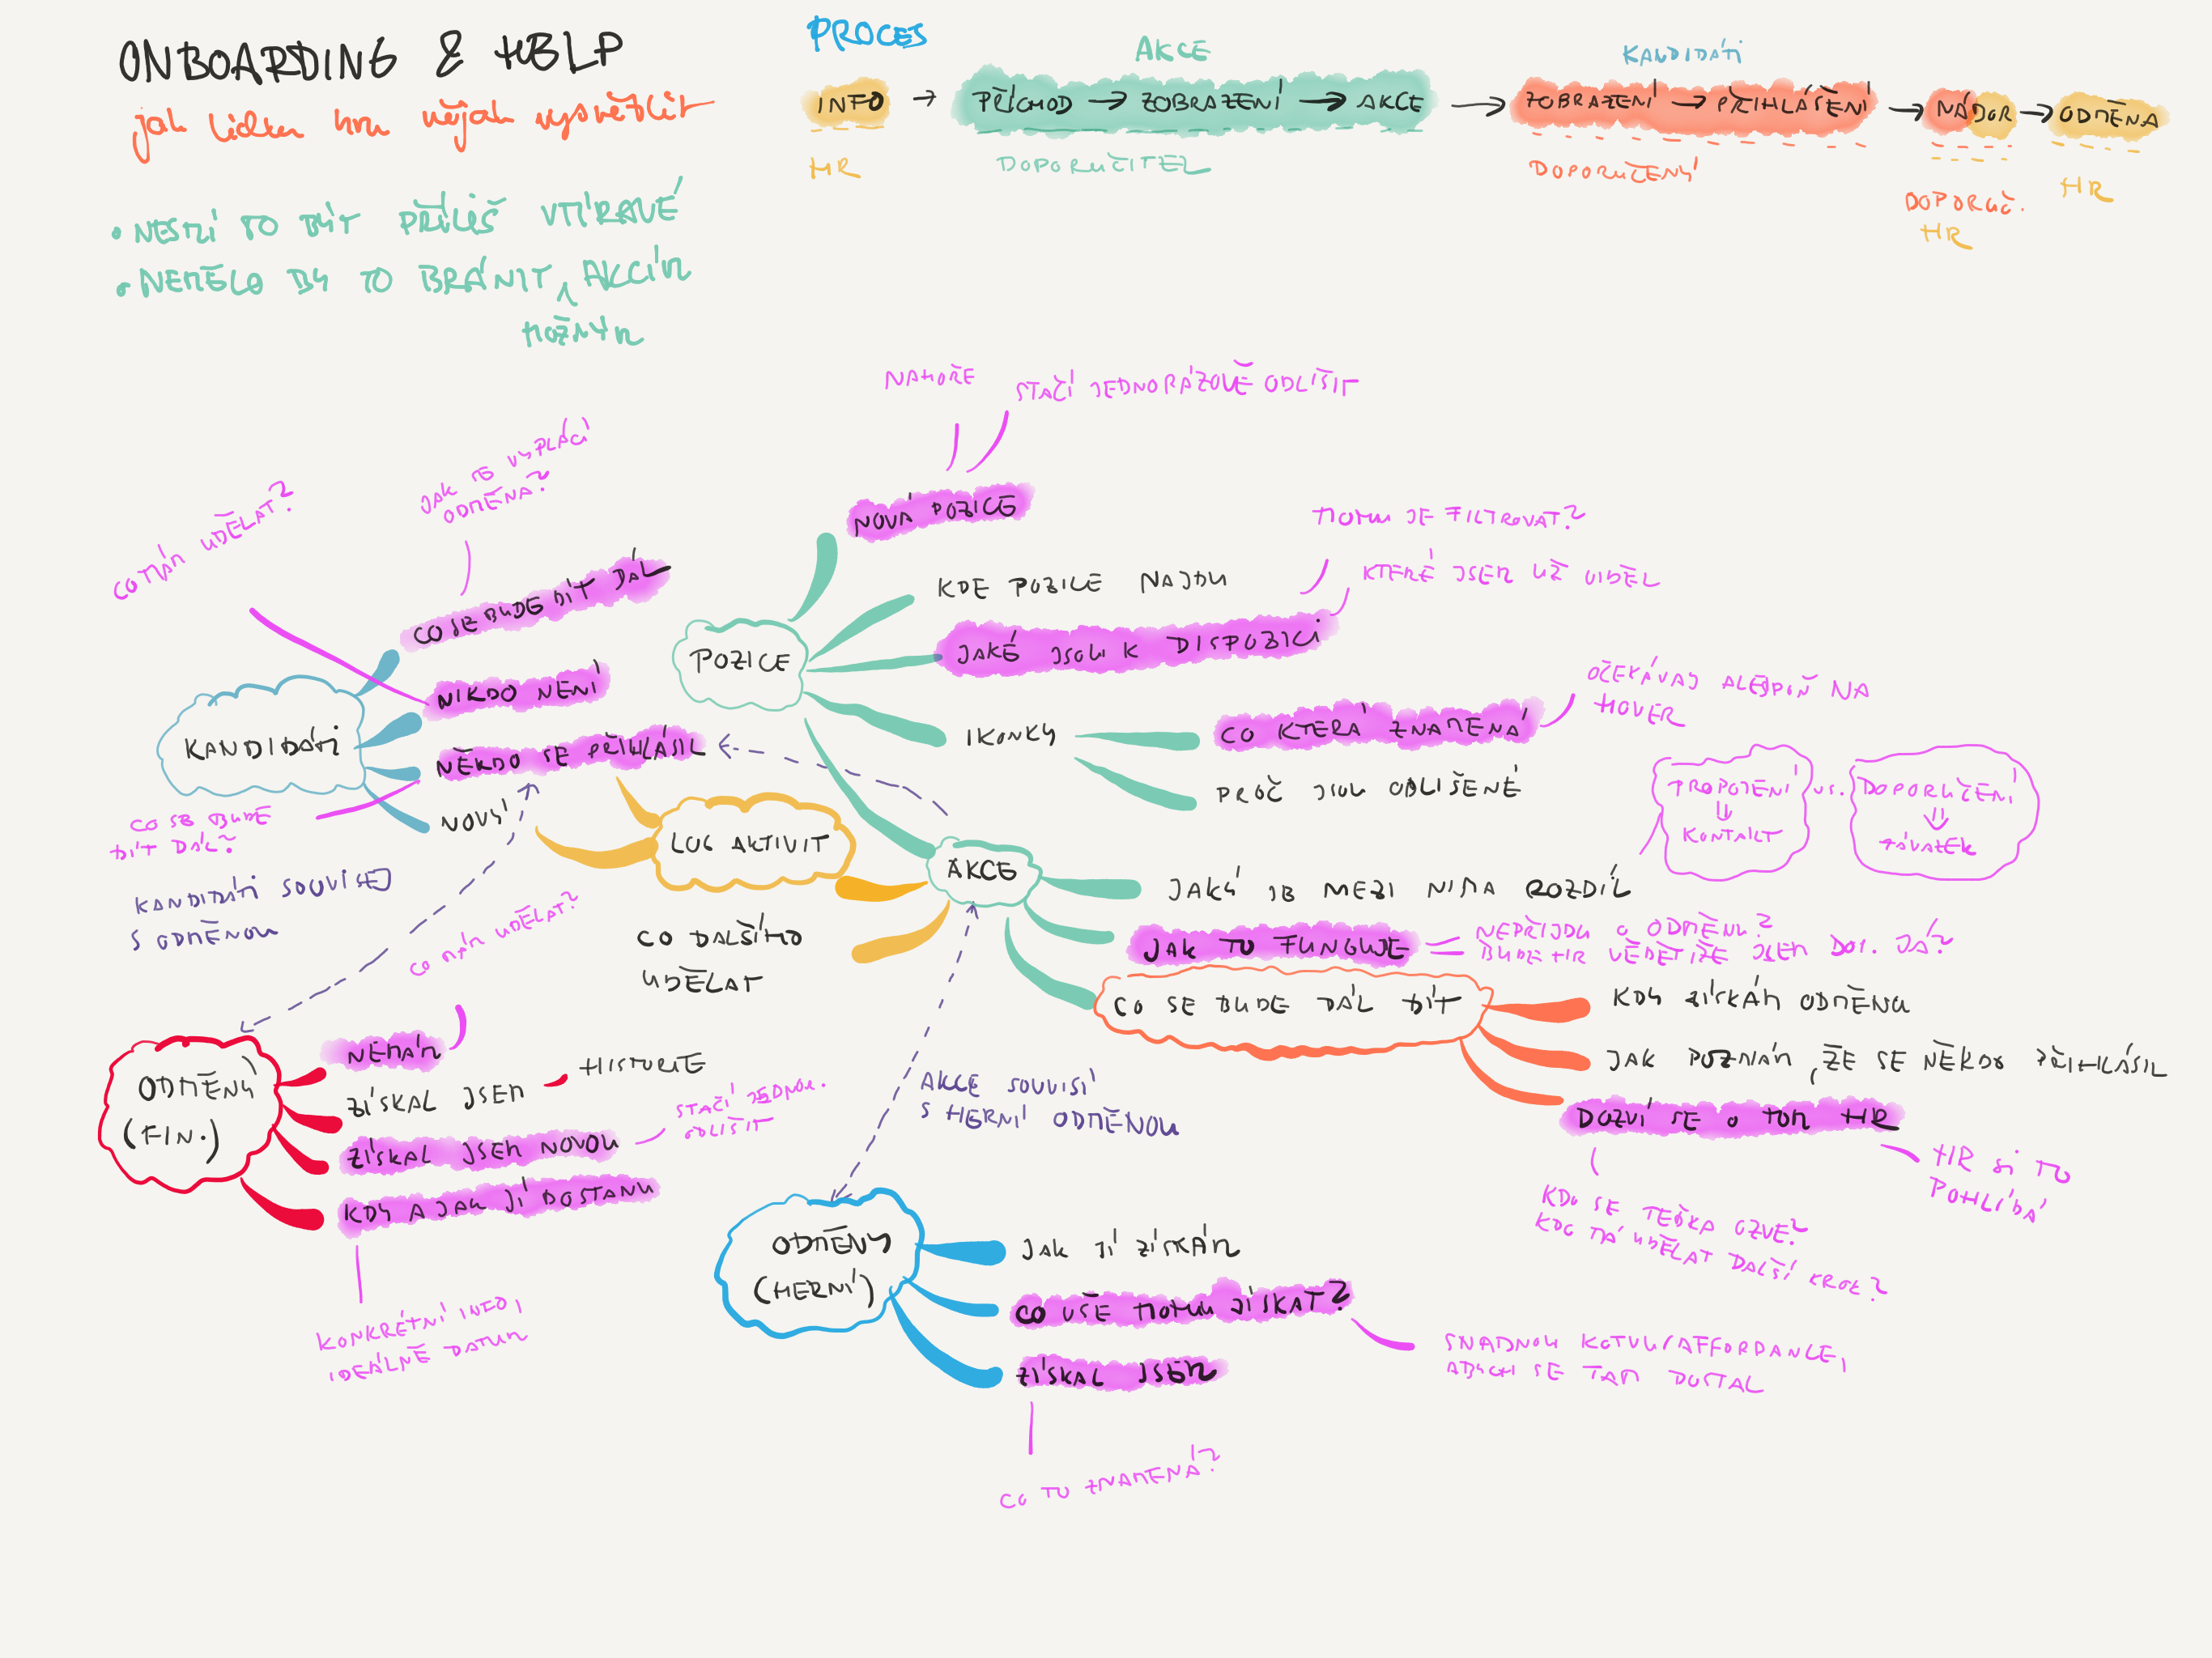 ONBOARDING & HELP
jak lidem hru nějak vysvětlit
• NESMÍ TO BÝT PŘÍLIŠ VTÍRAVÉ
• NEMĚLO BY TO BRÁNIT AKCÍM
MOŽNÝM
PROCES
AKCE
KANDIDÁTI
INFO → PŘÍCHOD → ZOBRAZENÍ → AKCE → ZOBRAZENÍ → PŘIHLÁŠENÍ → NÁBOR → ODMĚNA
HR
DOPORUČITEL
DOPORUČENÝ
DOPORUČ.
HR
HR
NAHOŘE
STAČÍ JEDNORÁZOVĚ ODLIŠIT
NOVÁ POZICE
MOHU JE FILTROVAT?
KDE POZICE NAJDU
KTERÉ JSEM UŽ VIDĚL
POZICE
JAKÉ JSOU K DISPOZICI
IKONKY
CO KTERÁ ZNAMENÁ
OČEKÁVÁJ ALESPOŇ NA
HOVER
PROČ JSOU ODLIŠENÉ
CO MÁM UDĚLAT?
JAK SE VYPLÁCÍ
ODMĚNA?
CO SE BUDE DÍT DÁL
NIKDO NENÍ
KANDIDÁTI
NĚKDO SE PŘIHLÁSIL
NOVÝ
CO SE BUDE
DÍT DÁL?
KANDIDÁTI SOUVISEJ
S ODMĚNOU
LOG AKTIVIT
CO DALŠÍHO
UDĚLAT
AKCE
PROPOJENÍ
⇓
KONTAKT
vs.
DOPORUČENÍ
⇓
ZÁVAZEK
JAKÝ JE MEZI NIMA ROZDÍL
JAK TO FUNGUJE
NEPŘIJDU O ODMĚNU?
BUDE HR VĚDĚT, ŽE JSEM DOP. JÁ?
CO SE BUDE DÁL DÍT
KDY ZÍSKÁM ODMĚNU
JAK POZNÁM, ŽE SE NĚKDO PŘIHLÁSIL
DOZVÍ SE O TOM HR
HR SI TO
POHLÍDÁ
KDO SE TEĎKA OZVE?
KDO MÁ UDĚLAT DALŠÍ KROK?
CO MÁM UDĚLAT?
ODMĚNY
(FIN.)
NEMÁM
ZÍSKAL JSEM
HISTORIE
ZÍSKAL JSEM NOVOU
STAČÍ JEDNOU.
ODLIŠIT
KDY A JAK JÍ DOSTANU
KONKRÉTNÍ INFO,
IDEÁLNĚ DATUM
AKCE SOUVISÍ
S HERNÍ ODMĚNOU
ODMĚNY
(HERNÍ)
JAK JÍ ZÍSKÁM
CO VŠE MOHU ZÍSKAT?
ZÍSKAL JSEM
SNADNOU KOTVU/AFFORDANCE,
ABYCH SE TAM DOSTAL
CO TO ZNAMENÁ?